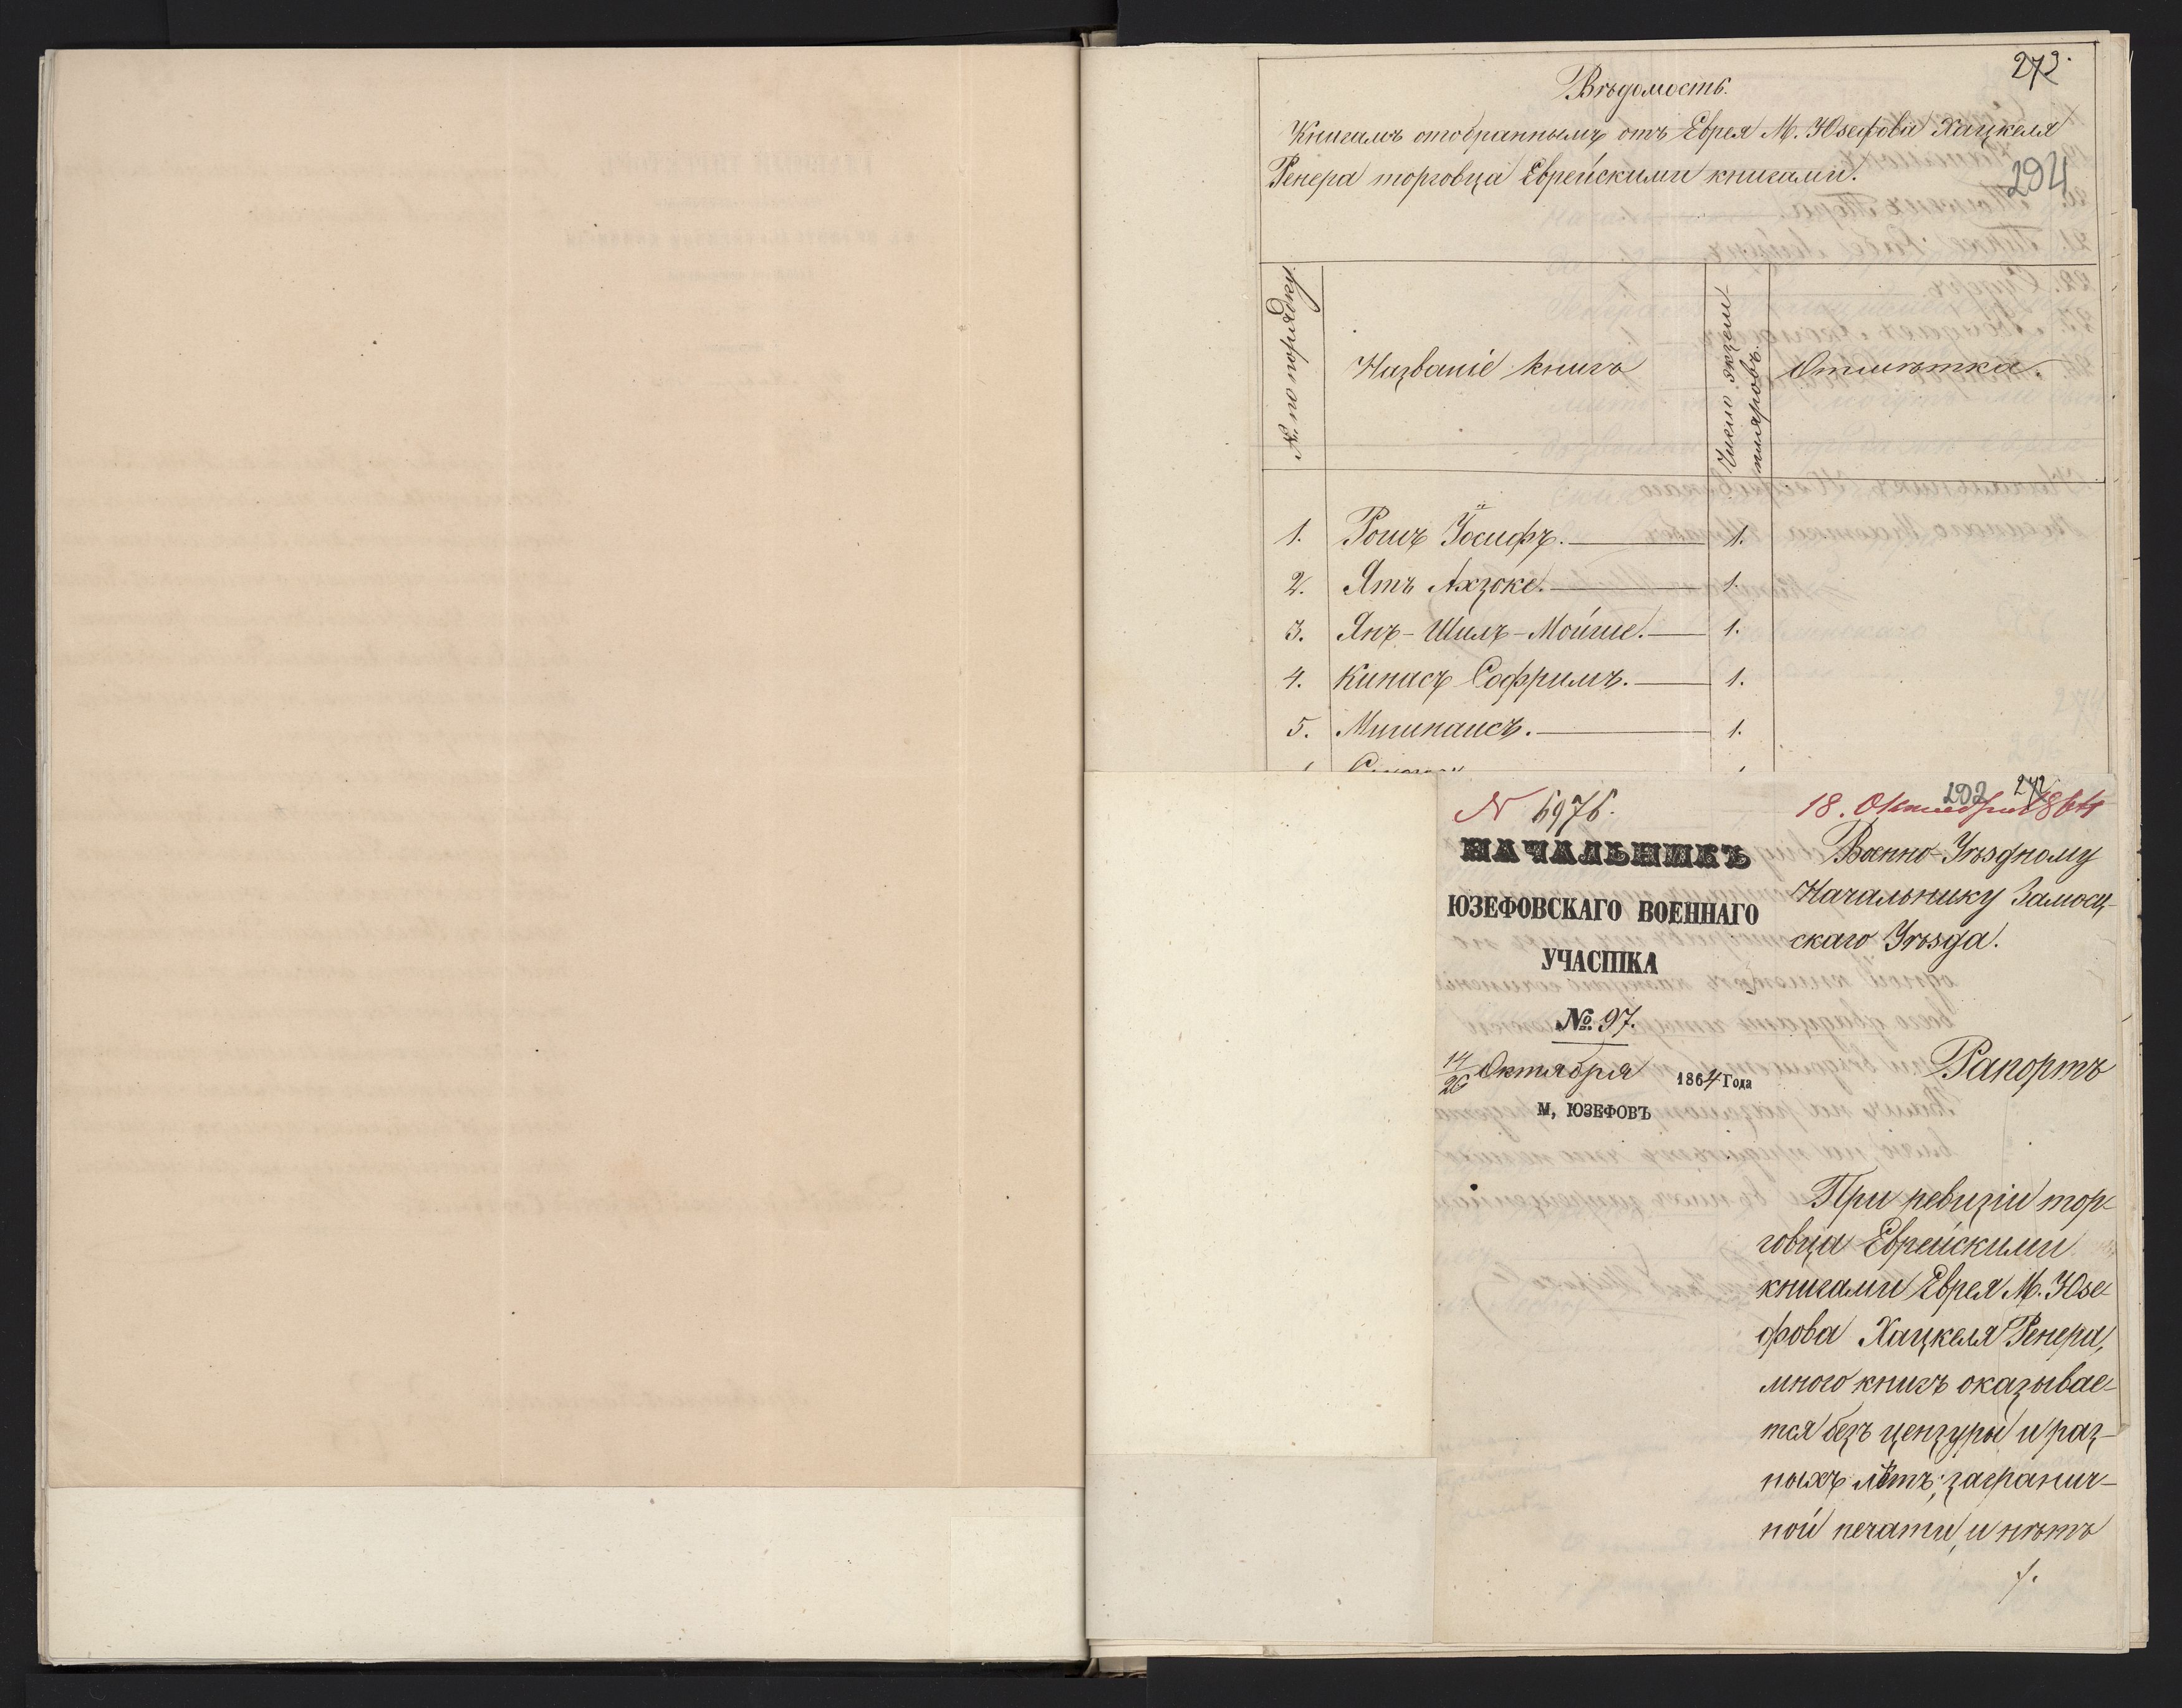 273.
Вѣдомость.
Книгамъ отобраннымъ отъ Еврея М. Юзефова Хацкеля
Ренера торговца Еврейскими книгами.
294
№ по порядку
Названіе книгъ
Число экзем-
пляровъ.
Отмѣтка.
1. Рошъ Іосифъ. 1.
2. Ятъ Ахзоке. 1.
3. Янъ-Шилъ-Мойше. 1.
4. Кинасъ Софримъ. 1.
5. Мишнаисъ. 1.
292 272
N 6976.
18. Октября 1864
НАЧАЛЬНИКЪ
ЮЗЕФОВСКАГО ВОЕННАГО
УЧАСТКА
№ 97.
14/26 Октября 1864 Года
М, ЮЗЕФОВЪ
Военно-Уѣздному
Начальнику Замосц-
скаго Уѣзда.
Рапортъ
При ревизіи тор-
говца Еврейскими
книгами Еврея М. Юзе-
фова Хацкеля Ренера,
много книгъ оказывае-
тся безъ цензуры и раз-
ныхъ лѣтъ, загранич-
ной печати, и нѣтъ